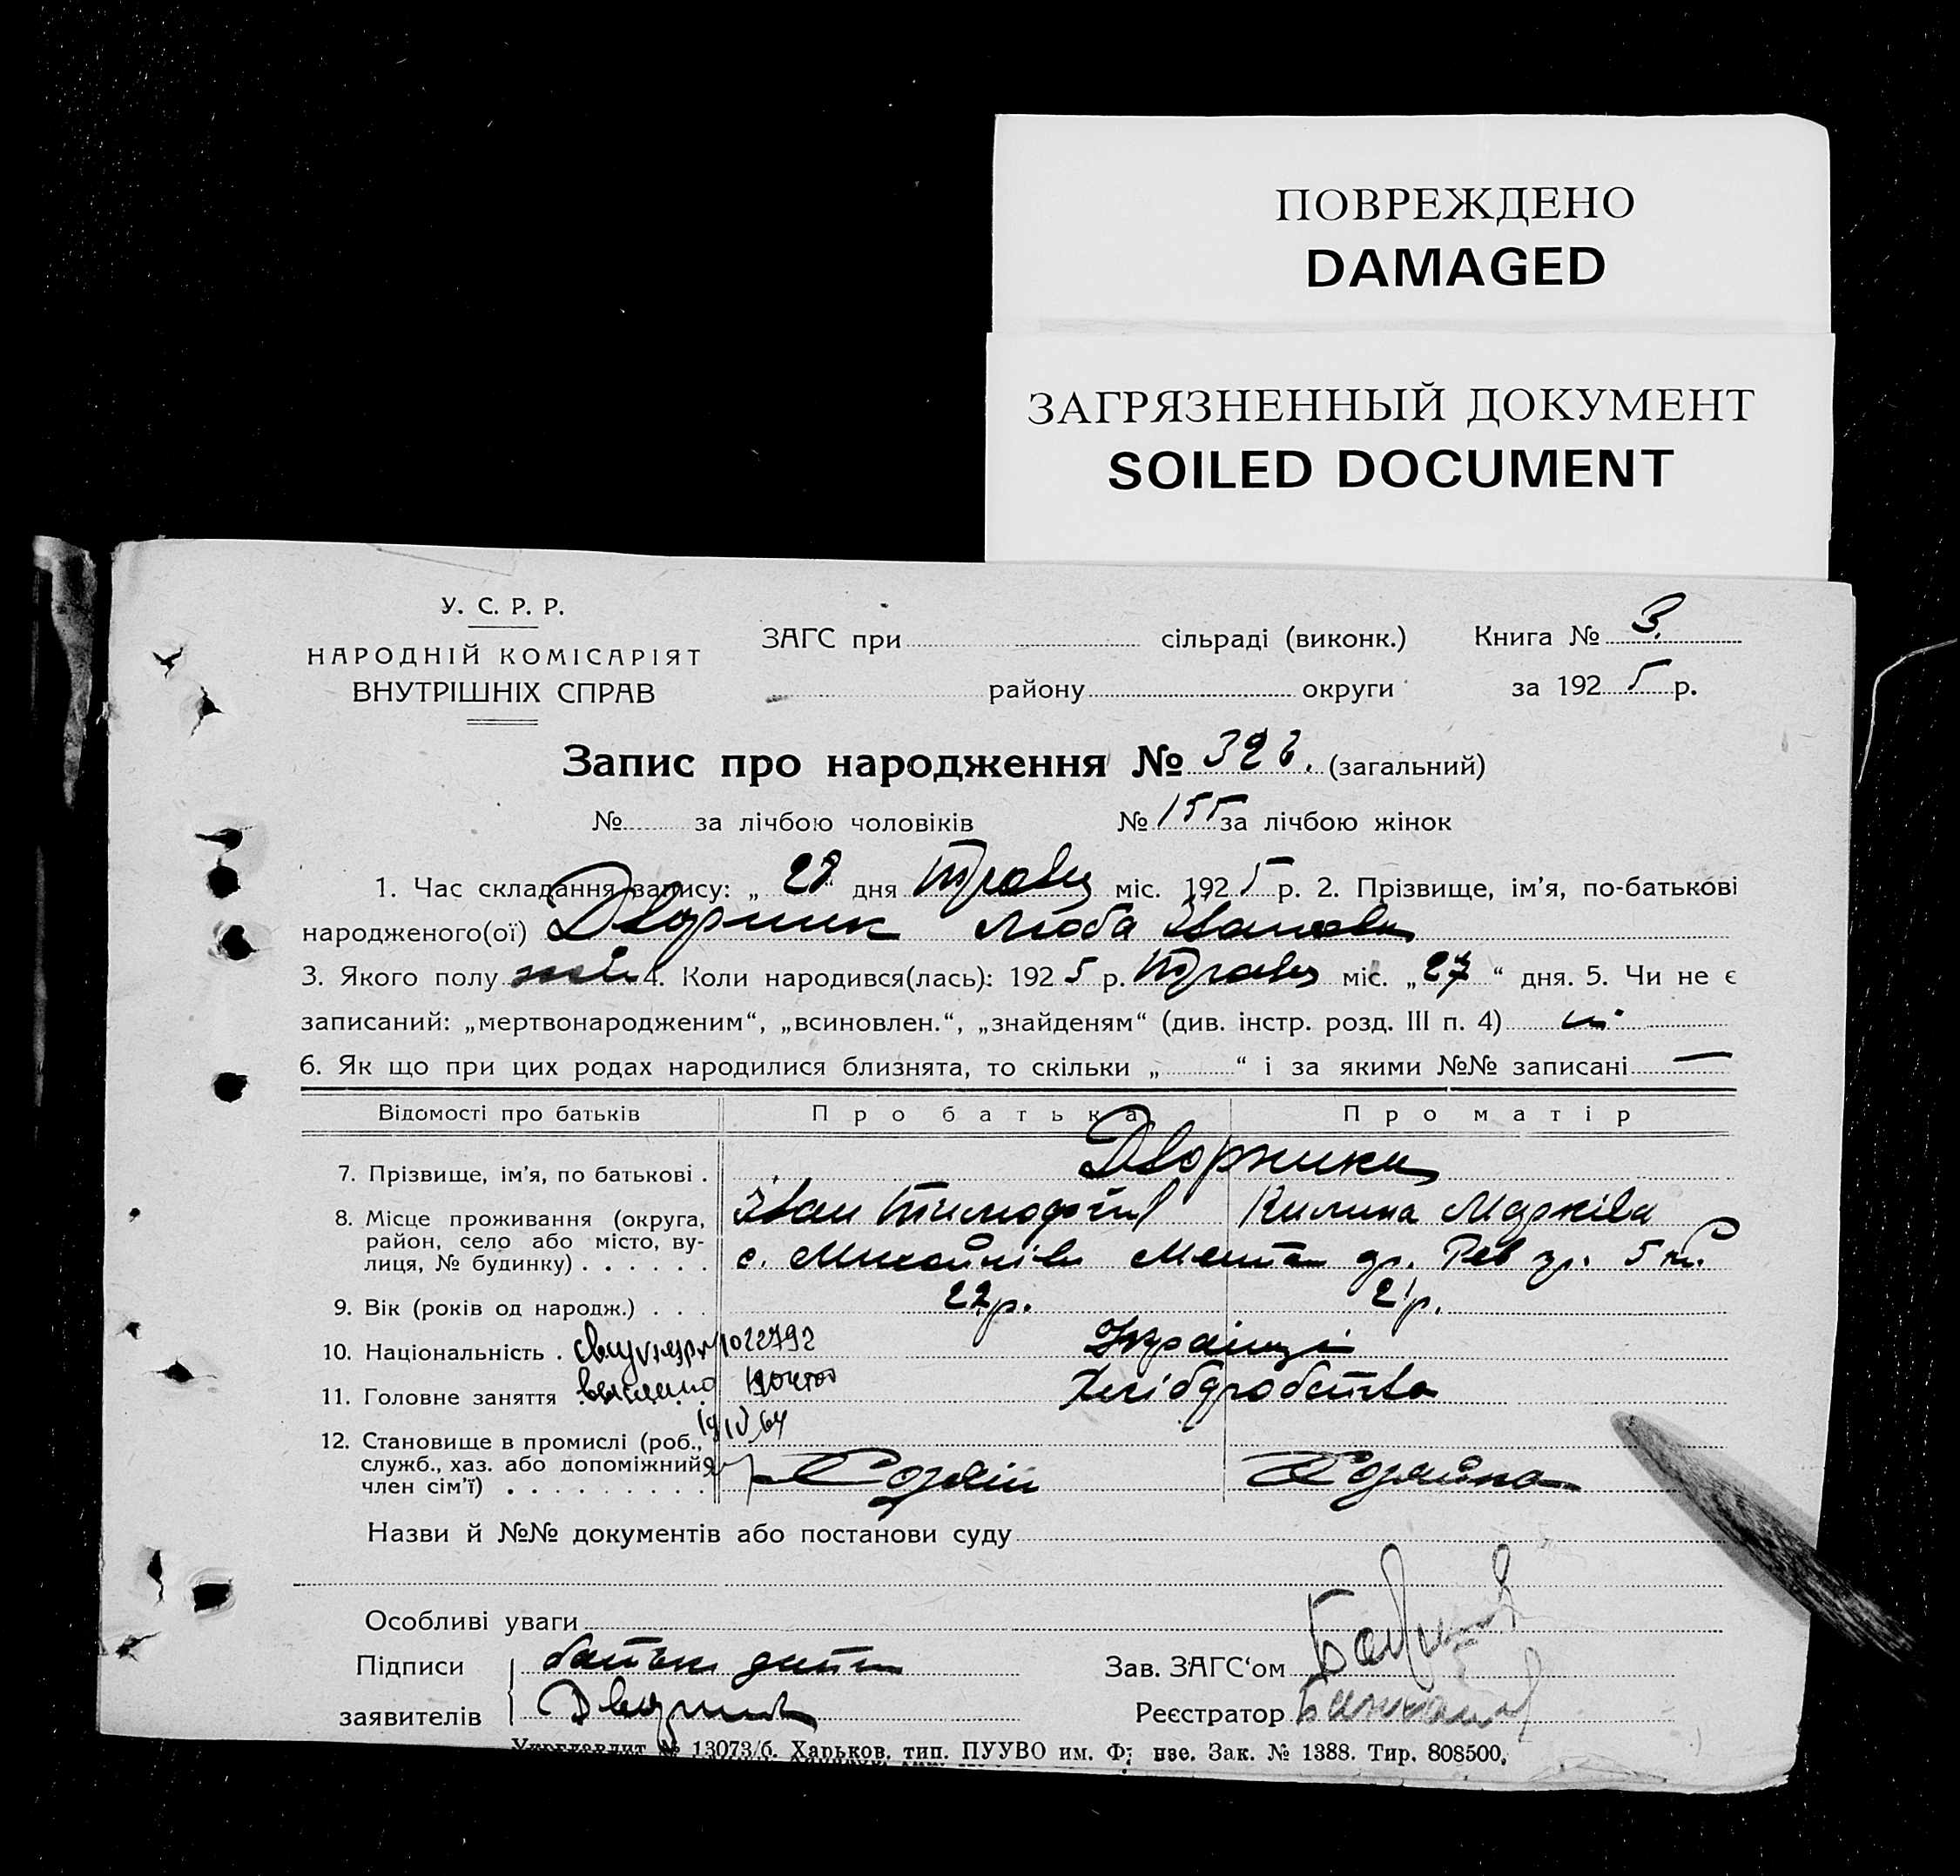 ПОВРЕЖДЕНО
DAMAGED
ЗАГРЯЗНЕННЫЙ ДОКУМЕНТ
SOILED DOCUMENT
У. С. Р. Р.
НАРОДНІЙ КОМІСАРІЯТ
ВНУТРІШНІХ СПРАВ
ЗАГС при сільраді (виконк.) Книга № 3.
району округи за 192 5 р.
Запис про народження № 326. (загальний)
№ за лічбою чоловіків № 155 за лічбою жінок
1. Час складання запису: „ 28 “ дня Травня міс. 192 5 р. 2. Прізвище, ім'я, по-батькові
народженого(ої) Дворник Люба Іванова
3. Якого полу жін 4. Коли народився(лась): 192 5 р. Травня міс. „ 27 “ дня. 5. Чи не є
записаний: „мертвонародженим“, „всиновлен.“, „знайденям“ (див. інстр. розд. III п. 4)
6. Як що при цих родах народилися близнята, то скільки „ “ і за якими №№ записані —
Відомості про батьків Про батька Про матір
7. Прізвище, ім'я, по батькові . Дворники
Іван Тимофіїв Килина Марківа
8. Місце проживання (округа, район, село або місто, вулиця, № будинку) . . . . . . с.
9. Вік (років од народж.) . . . 22 р. 21 р.
10. Національність . Українці
1022792
11. Головне заняття Хліборобство
19 IV 64
12. Становище в промислі (роб., служб., хаз. або допоміжний член сім'ї) . . . . . . . . . Хозяїн Хозяйка
Назви й №№ документів або постанови суду
Особливі уваги
Підписи батьки дитини Зав. ЗАГС'ом
заявителів Дворник Реєстратор
№ 13073/б. Харьков. тип. ПУУВО им. Зак. № 1388. Тир. 808500.